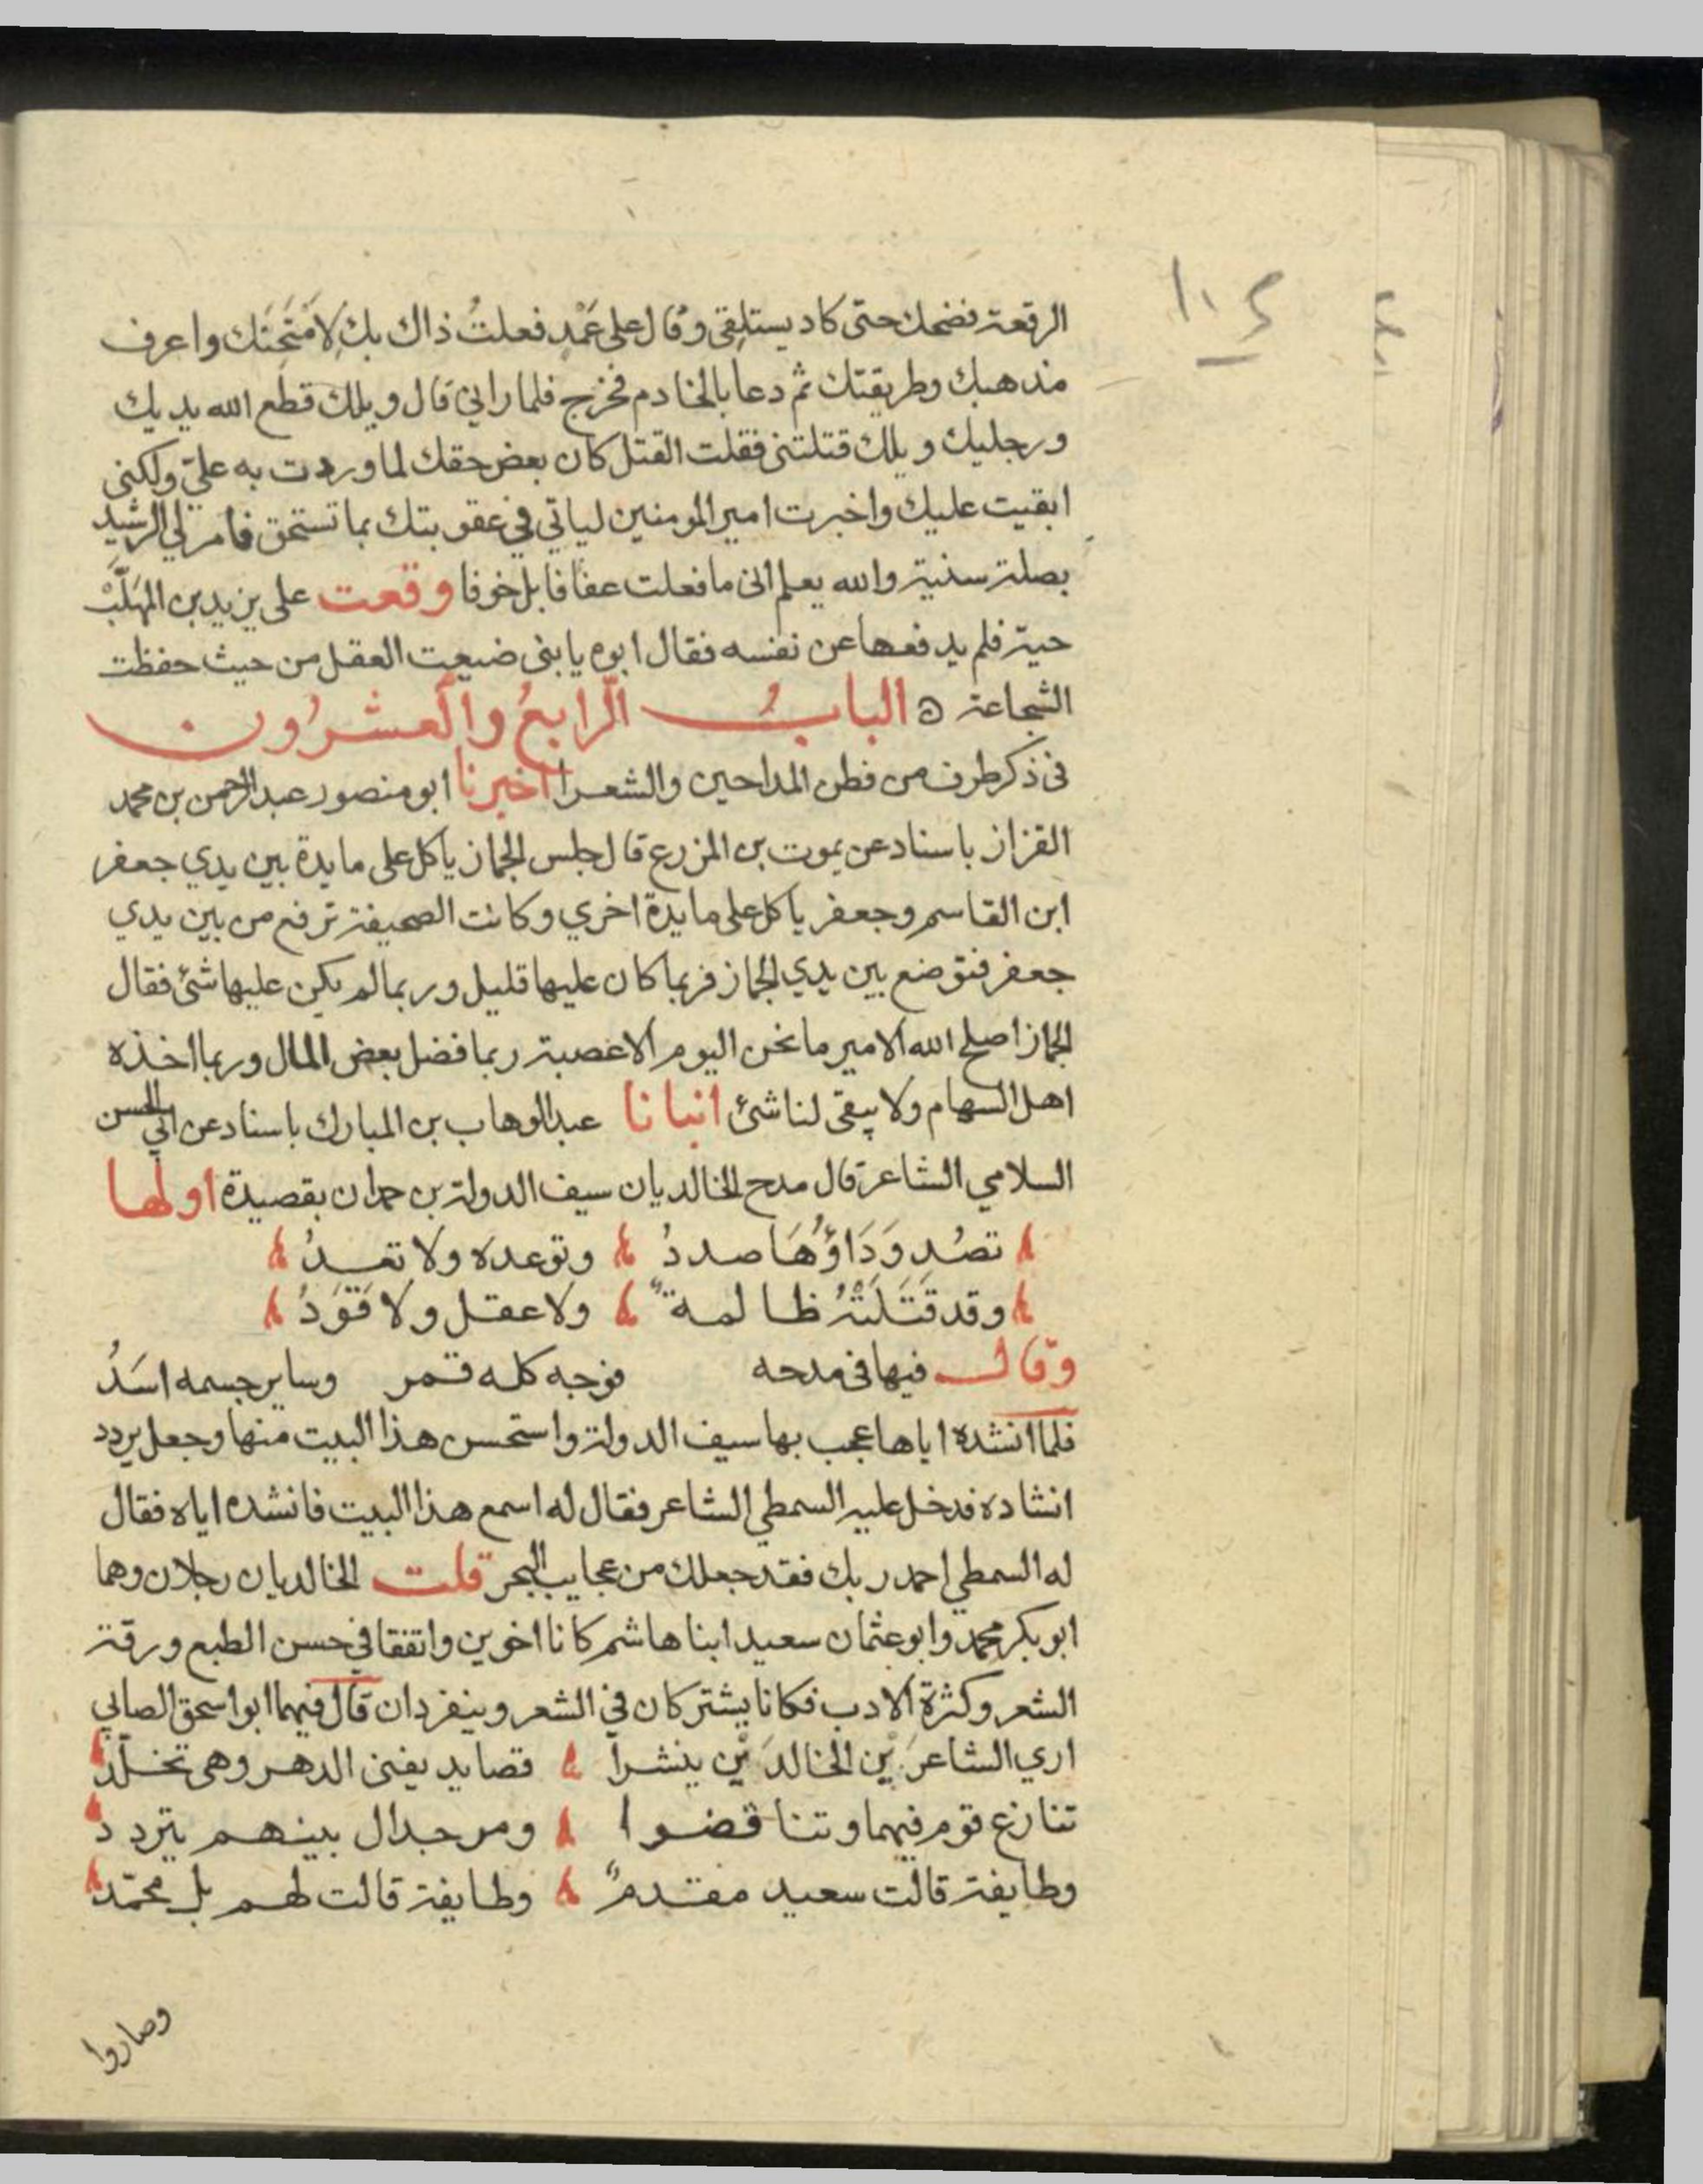 الرقعة فضحك حتى كاد يستلقى وقال على عَمْدٍ فعلتُ ذاك بك لِاَمْتَحِنَك واعرف
مذهبك وطريقتك ثم دعا بالخادم فخرج فلما رانى قال ويلك قطع الله يديك
ورجليك ويلك قتلتنى فقلت القتل كان بعض حقك لما وردت به علىّ ولكنى
ابقيت عليك واخبرت امير المومنين لياتي في عقوبتك بما تستحق فامر لي الرشيد
بصلة سنية والله يعلم انى ما فعلت عفافا بل خوفا وقعت على يزيد بن المهَلَّبْ
حية فلم يدفعها عن نفسه فقال ابوه يا بنى ضيعت العقل من حيث حفظت
الشجاعة ه البابُ الرابعُ والعشرُون
فى ذكر طرف من فطن المداحين والشعرا اخبرنا ابو منصور عبد الرحمن بن محمد
القزاز باسناد عن يموت بن المزرع قال جلس الجماز ياكل على مايدة بين يدي جعفر
ابن القاسم وجعفر ياكل على مايدة اخري وكانت الصحيفة ترفع من بين يدي
جعفر فتوضع بين يدي الجماز فربما كان عليها قليل وربما لم يكن عليها شئ فقال
الجماز اصلح الله الامير ما نحن اليوم الا عصبة ربما فضل بعض المال وربما اخذه
اهل السهام ولا يبقى لنا شئ انبانا عبد الوهاب بن المبارك باسناد عن ابي الحسن
السلامي الشاعر قال مدح الخالديان سيف الدولة بن حمدان بقصيدة اولها
تصُد وَدَاؤُهَا صددُ وتوعده ولا تعدُ
وقد قَتَلَتْهُ ظالمةً ولا عقل ولا قَوَدُ
وقال فيها فى مدحه فوجه كله قمر وساير جسمه اسَدُ
فلما انشده اياها عجب بها سيف الدولة واستحسن هذا البيت منها وجعل يردد
انشاده فدخل عليه السمطي الشاعر فقال له اسمع هذا البيت فانشده اياه فقال
له السمطي احمد ربك فقد جعلك من عجايب البحر قلت الخالديان رجلان وهما
ابو بكر محمد وابو عثمان سعيد ابنا هاشم كانا اخوين واتفقا في حسن الطبع ورقة
الشعر وكثرة الادب فكانا يشتركان في الشعر وينفردان قال فيهما ابو اسحق الصابي
اري الشاعرَيْن الخالدَيْن ينشرا قصايد يفنى الدهر وهى تخلّدُ
تنازع قوم فيهما وتناقضوا ومر جدال بينهم يتردد
وطايفة قالت سعيد مقدمٌ وطايفة قالت لهم بل محمّدُ
وصاروا